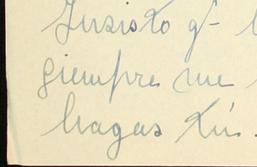 Insisto q-
siempre me
hagas tús.